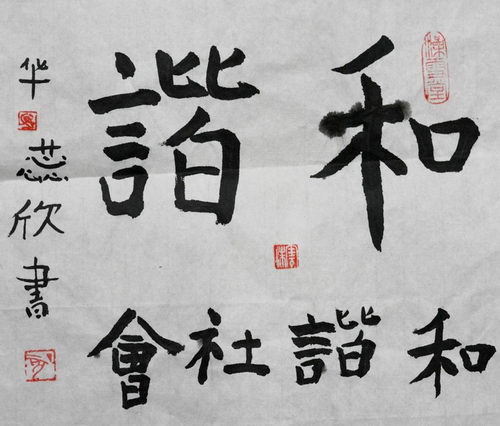 和諧
和諧社會
华蕊欣書